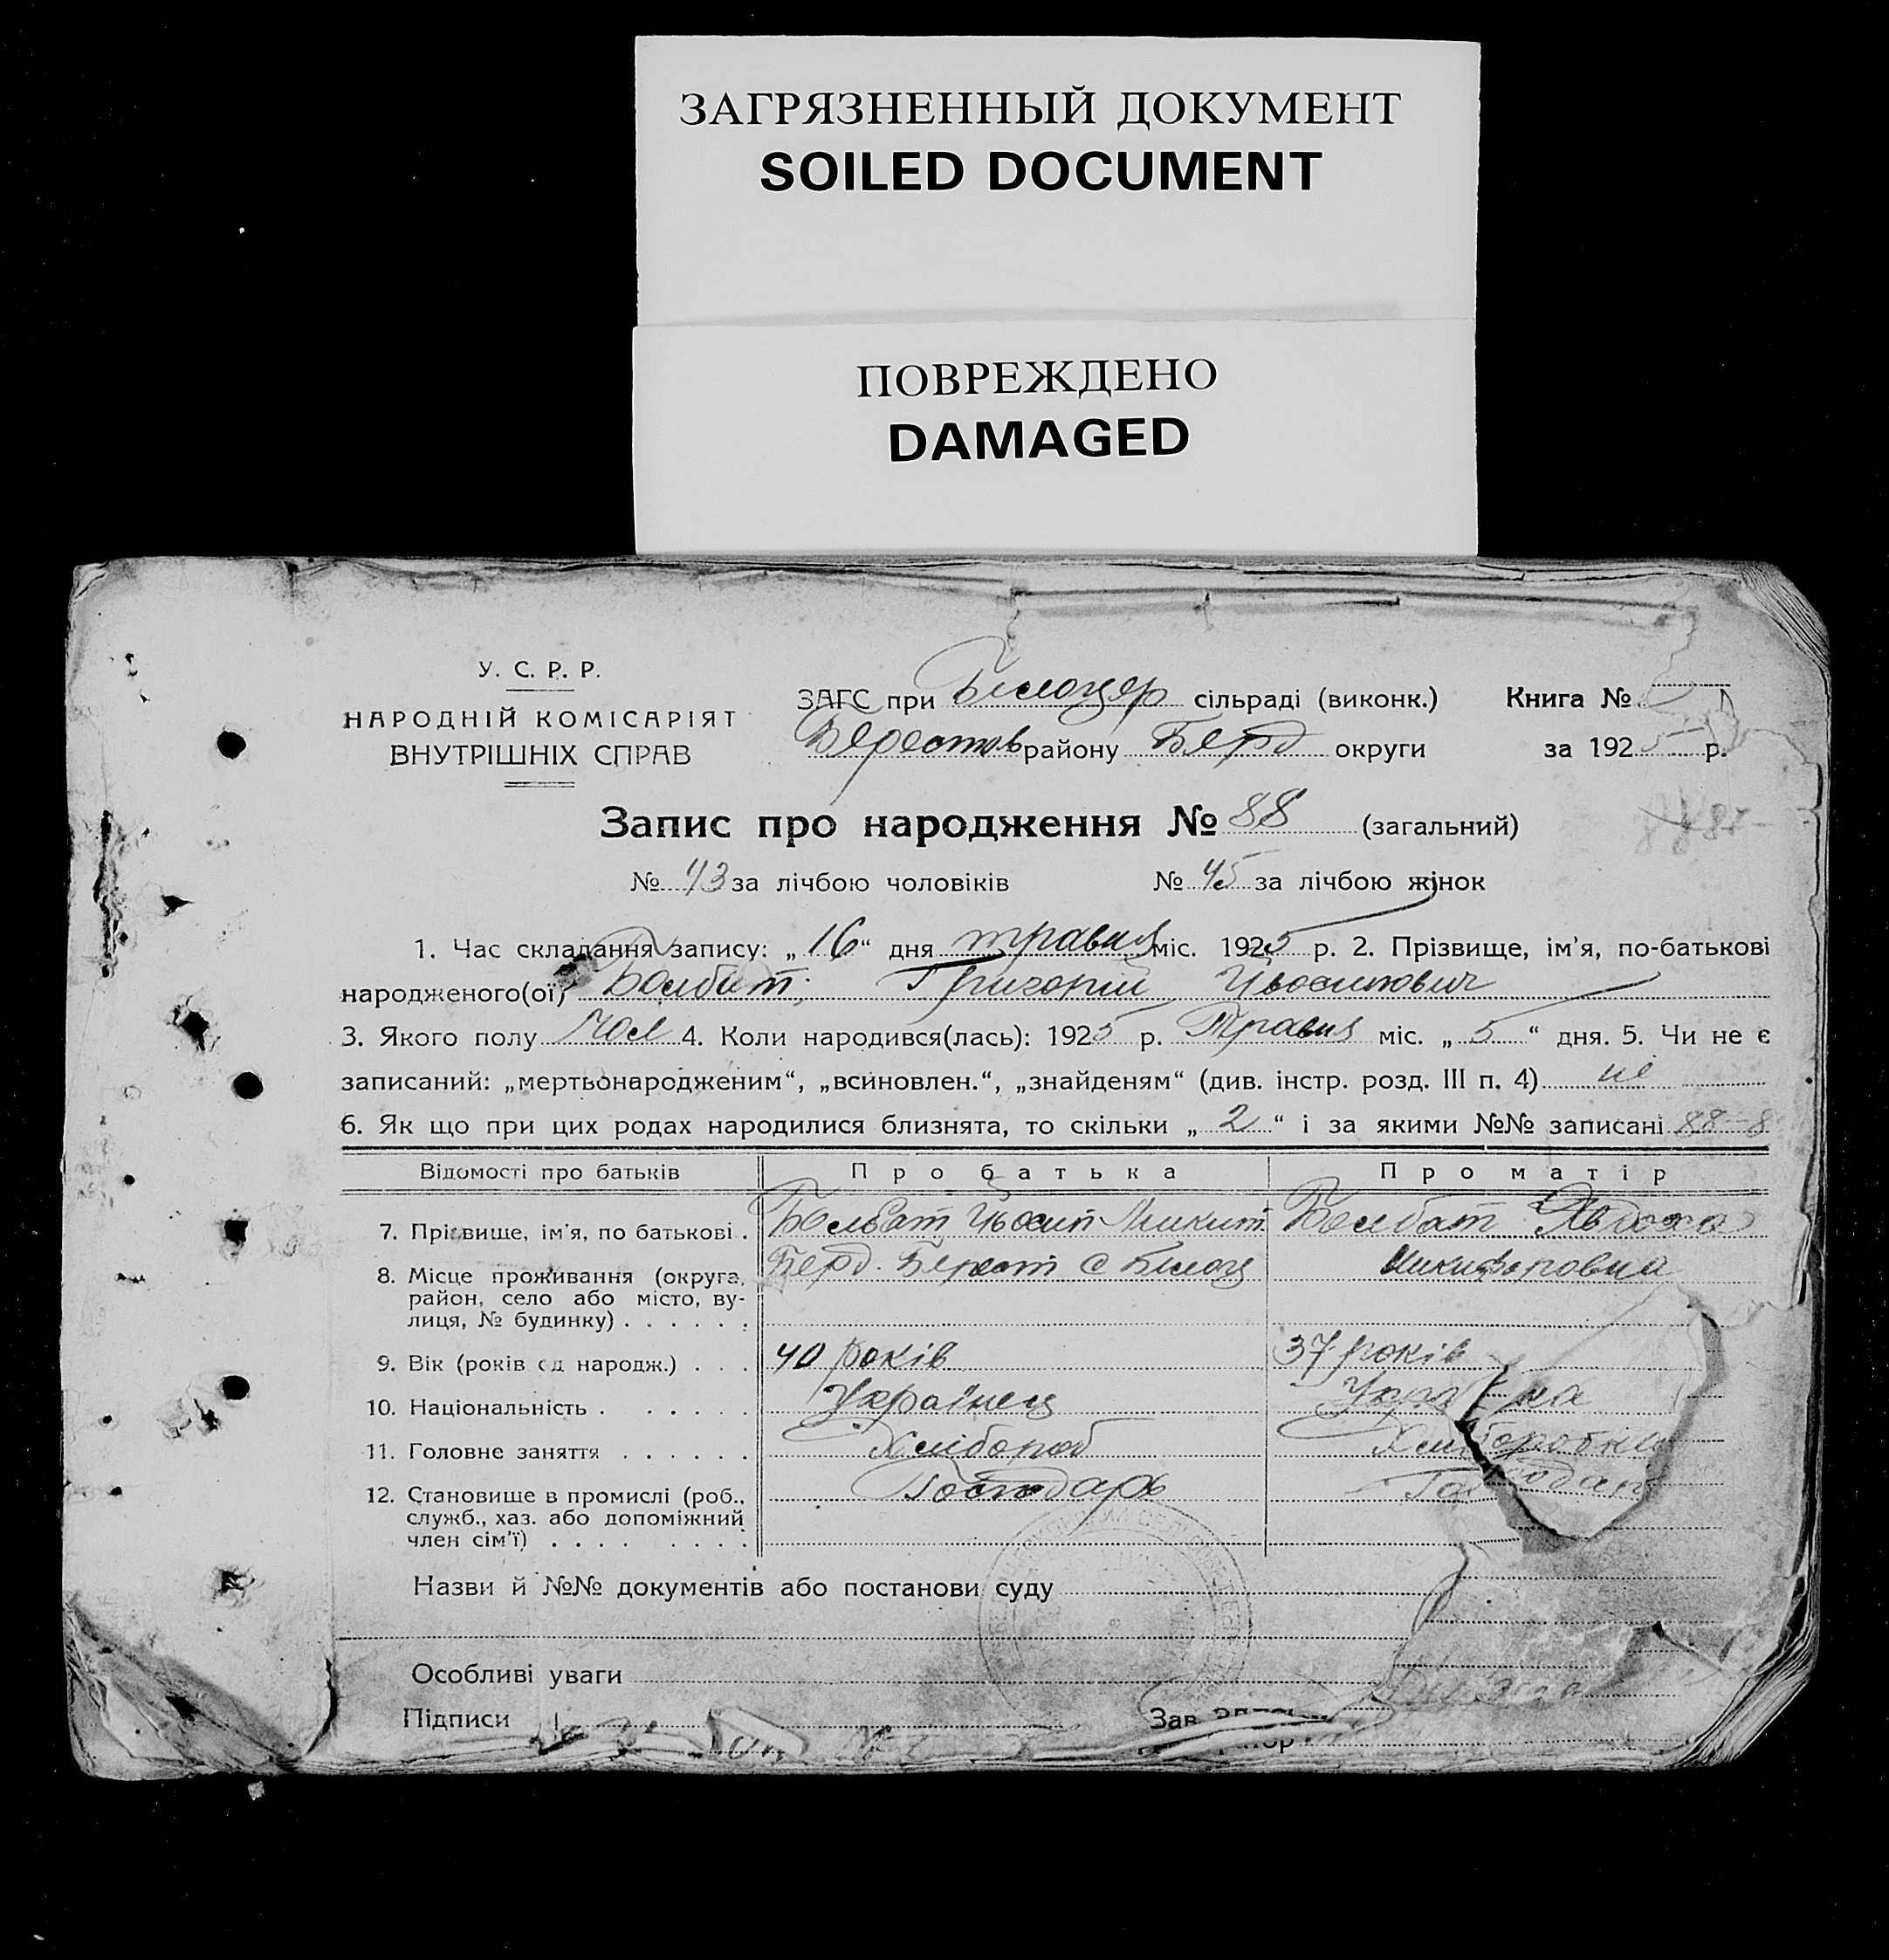 ЗАГРЯЗНЕННЫЙ ДОКУМЕНТ
SOILED DOCUMENT
ПОВРЕЖДЕНО
DAMAGED
У. С. Р. Р.
НАРОДНІЙ КОМІСАРІЯТ
ВНУТРІШНІХ СПРАВ
ЗАГС при Білоцер сільраді (виконк.) Книга №
Берестов району Берд округи за 1925 р.
Запис про народження № 88 (загальний)
№ 43 за лічбою чоловіків № 45 за лічбою жінок
1. Час складання запису: „16“ дня травня міс. 1925 р. 2. Прізвище, ім'я, по-батькові
народженого(ої) Болбат; Григорій Йвосипович
3. Якого полу Чол 4. Коли народився(лась): 1925 р. Травня міс. „5“ дня. 5. Чи не є
записаний: „мертвонародженим“, „всиновлен.“, „знайденям“ (див. інстр. розд. III п. 4) ні
6. Як що при цих родах народилися близнята, то скільки „2“ і за якими №№ записані 88-8
Відомості про батьків Про батька Про матір
7. Прізвище, ім'я, по батькові . Болбат Йвосип Микит. Болбат Явдоха
8. Місце проживання (округа, Берд. Берест с Білоц Никифоровна
район, село або місто, ву-
лиця, № будинку) . . . . . .
9. Вік (років од народж.) . . . 40 років 37 років
10. Національність . . . . . . Українець
11. Головне заняття . . . . . . Хлібороб Хлiборобка
12. Становище в промислі (роб., Господарь
служб., хаз. або допоміжний
член сім'ї) . . . . . . . .
Назви й №№ документів або постанови суду
Особливі уваги
Підписи Зав.